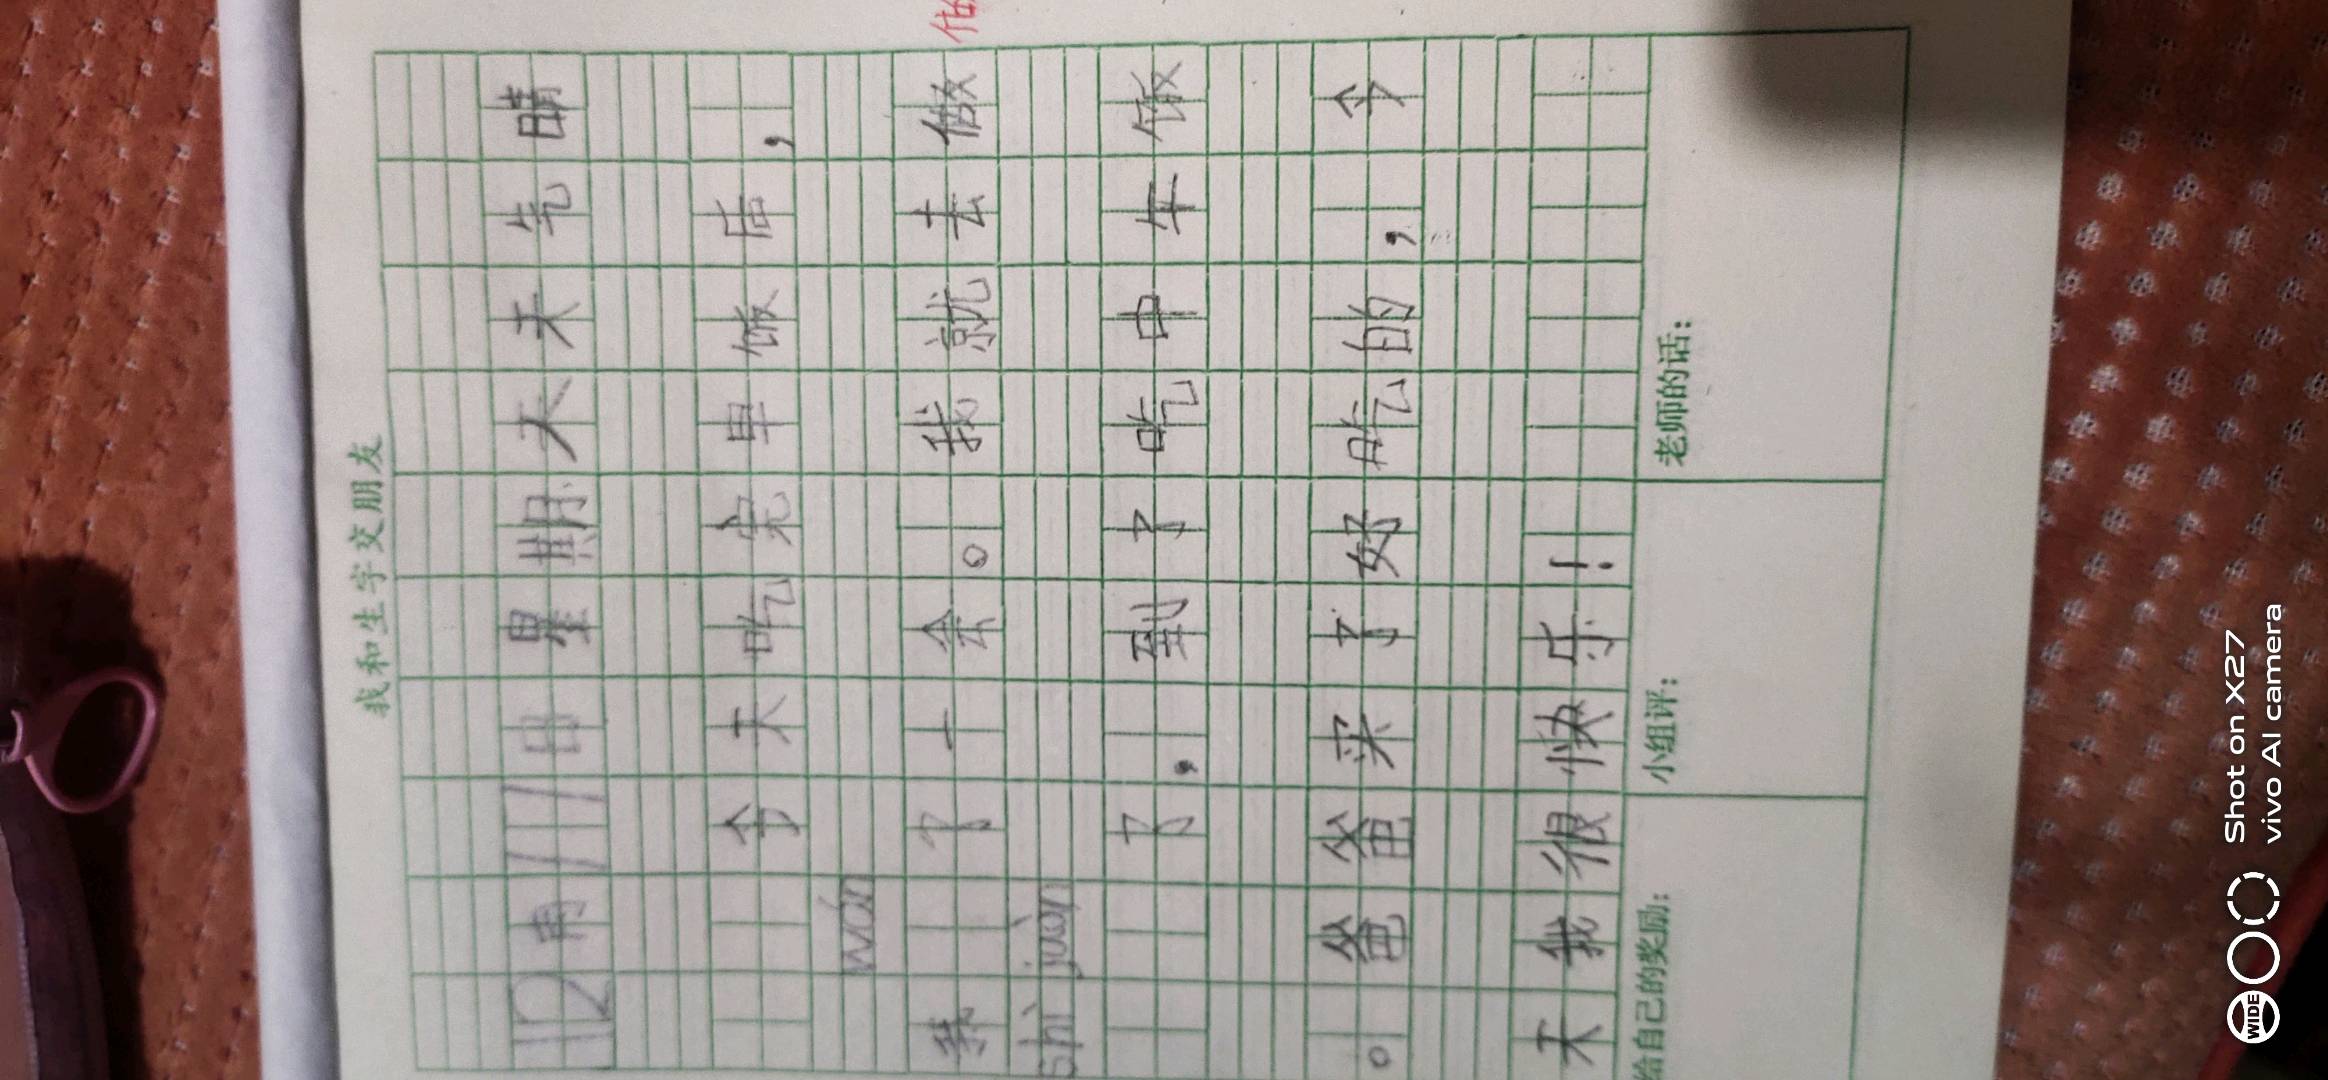 我和生字交朋友
12月11日星期天天气晴
今天吃完早饭后，
wán
我了一会。我就去做
shì juàn
了，到了吃中午饭
。爸爸买了好吃的，今
天我很快乐！
给自己的奖励： 小组评： 老师的话：
WIDE
Shot on X27
vivo AI camera